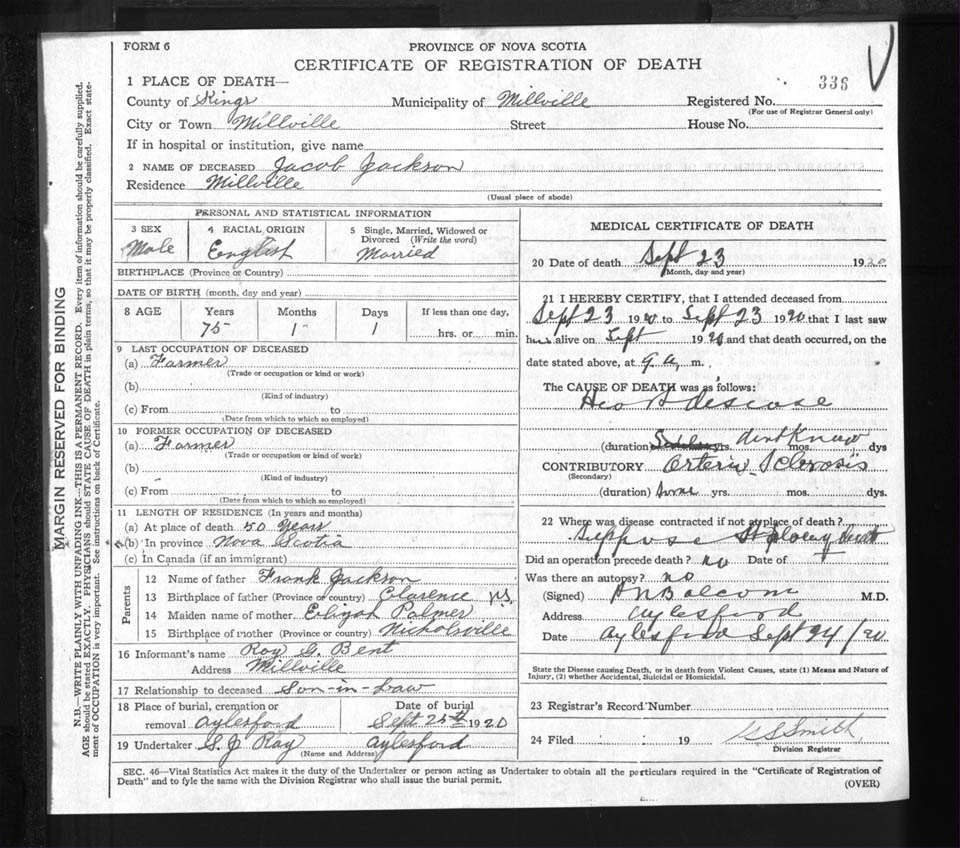 FORM 6
PROVINCE OF NOVA SCOTIA
CERTIFICATE OF REGISTRATION OF DEATH
336
1 PLACE OF DEATH—
County of Kings Municipality of Millville Registered No.
(For use of Registrar General only)
City or Town Millville Street House No.
If in hospital or institution, give name
2 NAME OF DECEASED Jacob Jackson
Residence Millville
(Usual place of abode)
MARGIN RESERVED FOR BINDING
N.B.—WRITE PLAINLY WITH UNFADING INK—THIS IS A PERMANENT RECORD. Every item of information should be carefully supplied.
AGE should be stated EXACTLY. PHYSICIANS should STATE CAUSE OF DEATH in plain terms, so that it may be properly classified. Exact state-
ment of OCCUPATION is very important. See instructions on back of Certificate.
PERSONAL AND STATISTICAL INFORMATION
3 SEX
Male
4 RACIAL ORIGIN
English
5 Single, Married, Widowed or
Divorced (Write the word)
Married
BIRTHPLACE (Province or Country)
DATE OF BIRTH (month, day and year)
8 AGE Years Months Days If less than one day,
75 1 1 hrs. or min.
9 LAST OCCUPATION OF DECEASED
(a) Farmer
(Trade or occupation or kind or work)
(b)
(Kind of industry)
(c) From to
(Date from which to which so employed)
10 FORMER OCCUPATION OF DECEASED
(a) Farmer
(Trade or occupation or kind of work)
(b)
(Kind of industry)
(c) From to
(Date from which to which so employed)
11 LENGTH OF RESIDENCE (In years and months)
(a) At place of death 50 Years
(b) In province Nova Scotia
(c) In Canada (if an immigrant)
Parents
12 Name of father Frank Jackson
13 Birthplace of father (Province or country) Clarence N.S.
14 Maiden name of mother Palmer
15 Birthplace of mother (Province or country) Nicholsville
16 Informant's name Roy G. Bent
Address Millville
17 Relationship to deceased Son-in-Law
18 Place of burial, cremation or
removal Aylesford
Date of burial
Sept 25th 1920
19 Undertaker S. J Ray Aylesford
(Name and Address)
MEDICAL CERTIFICATE OF DEATH
20 Date of death Sept 23 1920
(Month, day and year)
21 I HEREBY CERTIFY, that I attended deceased from
Sept 23 1920 to Sept 23 1920 that I last saw
h alive on Sept 1920 and that death occurred, on the
date stated above, at 9 a m.
The CAUSE OF DEATH was as follows:
Heart disease
(duration yrs. dont Know mos. dys
CONTRIBUTORY Arterio Sclerosis
(Secondary)
(duration) Some yrs. mos. dys.
22 Where was disease contracted if not at place of death?
Suppose at place of death
Did an operation precede death? no Date of
Was there an autopsy? no
(Signed) Balcom M.D.
Address Aylesford
Date Aylesford Sept 24/20
State the Disease causing Death, or in death from Violent Causes, state (1) Means and Nature of
Injury, (2) whether Accidental, Suicidal or Homicidal.
23 Registrar's Record Number
24 Filed 19 Smith
Division Registrar
SEC. 46—Vital Statistics Act makes it the duty of the Undertaker or person acting as Undertaker to obtain all the particulars required in the "Certificate of Registration of
Death" and to fyle the same with the Division Registrar who shall issue the burial permit.
(OVER)